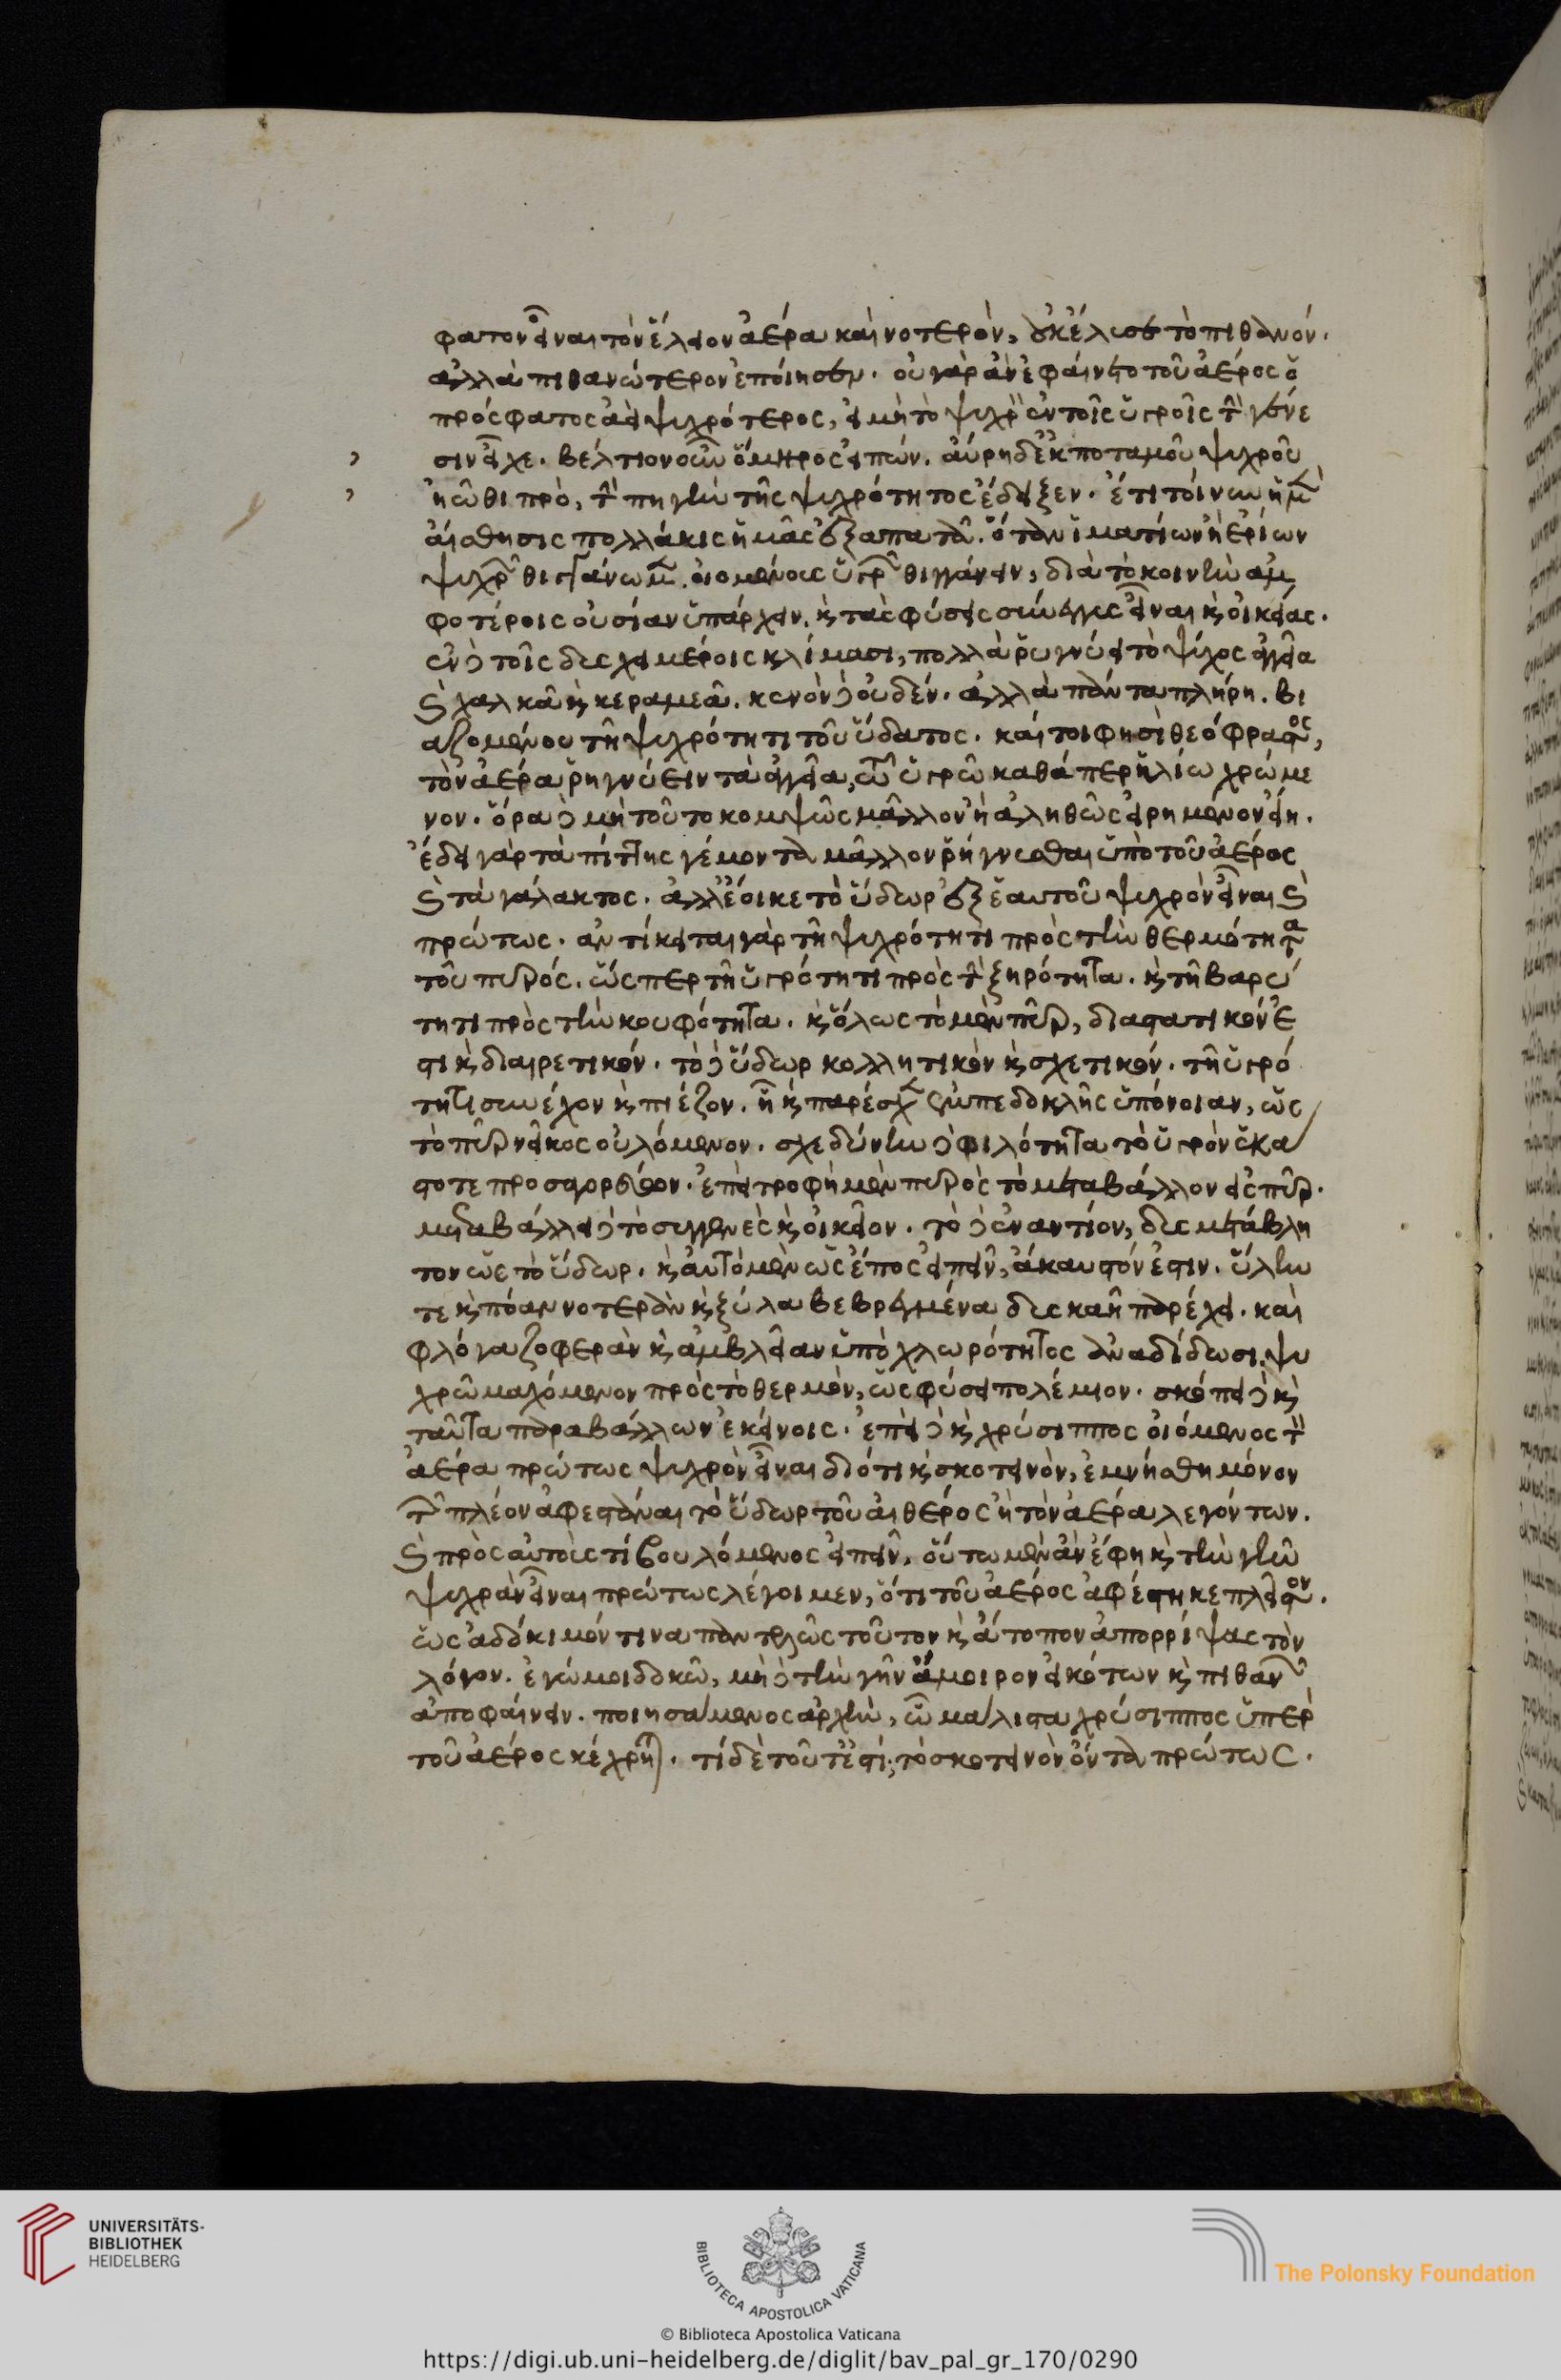 φατον εἶναι τὸν ἕλειον ἀέρα καὶ νοτερὸν, οὐκ ἔλυσε τὸ πιθανόν.
ἀλλὰ πιθανώτερον ἐποίησεν. οὐ γὰρ ἂν ἐφαίνετο τοῦ ἀέρος ὁ
πρόσφατος ἀεὶ ψυχρότερος, εἰ μὴ τὸ ψυχρὸν ἐν τοῖς ὑγροῖς τὴν γένε
σιν εἶχε. βέλτιον οὖν ὅμηρος εἰπών. αὔρη δ' ἐκ ποταμοῦ ψυχροῦ
ἠῶθι πρὸ, τὴν πηγὴν τῆς ψυχρότητος ἔδειξεν. ἔτι τοίνυν ἡμῶν
αἴσθησις πολλάκις ἡμᾶς ἐξαπατᾶ. ὅταν ἱματίων ἢ ἐρίων
ψυχρῶν θιγγάνωμεν. οἰομένοις ὑγρῶν θιγγάνειν, διὰ τὸ κοινὴν ἀμ
φοτέροις οὐσίαν ὑπάρχειν. καὶ τὰς φύσεις σύνεγγυς εἶναι καὶ οἰκείας.
ἐν δὲ τοῖς δυσχειμέροις κλίμασι, πολλὰ ῥηγνύει τὸ ψύχος ἀγγεῖα
καὶ χαλκᾶ καὶ κεραμεᾶ. κενὸν δὲ οὐδέν. ἀλλὰ πάντα πλήρη. βι
αζομένου τῆ ψυχρότητι τοῦ ὕδατος. καίτοι φησὶ θεόφραστος,
τὸν ἀέρα ῥηγνύειν τὰ ἀγγεῖα, τῶ ὑγρῶ καθάπερ ἥλίω χρώμε
νον. ὅρα δὲ μὴ τοῦτο κομψῶς μᾶλλον ἢ ἀληθῶς εἰρημένον εἴη.
ἔδει γὰρ τὰ πίττης γέμοντα μᾶλλον ῥήγνυσθαι ὑπὸ τοῦ ἀέρος
καὶ τὰ γάλακτος. ἀλλ' ἔοικε τὸ ὕδωρ ἐξ ἑαυτοῦ ψυχρὸν εἶναι καὶ
πρώτως. ἀντίκειται γὰρ τῆ ψυχρότητι πρὸς τὴν θερμότητα
τοῦ πυρός. ὥσπερ τῆ ὑγρότητι πρὸς τὴν ξηρότητα. καὶ τῆ βαρύ
τητι πρὸς τὴν κουφότητα. καὶ ὅλως τὸ μὲν πῦρ, διαστατικόν ἐ
στι καὶ διαιρετικόν. τὸ δὲ ὕδωρ κολλητικὸν καὶ σχετικόν. τῆ ὑγρό
τητι συνέχον καὶ πιέζον. ἧ καὶ παρέσχεν ἐμπεδοκλῆς ὑπόνοιαν, ὡς
τὸ πῦρ νεῖκος οὐλόμενον. σχεδύνην δὲ φιλότητα τὸ ὑγρὸν ἑκά
στοτε προσαγορεύων. ἐπεὶ τροφὴ μὲν πυρὸς τὸ μεταβάλλον εἰς πῦρ.
μεταβάλλει δὲ τὸ συγγενὲς καὶ οἰκεῖον. τὸ δὲ ἐναντίον, δυσμετάβλη
τον ὡς τὸ ὕδωρ. καὶ αὐτὸ μὲν ὡς ἔπος εἰπεῖν, ἄκαυστόν ἐστιν. ὕλην
τε καὶ πόαν νοτερὰν καὶ ξύλα βεβρεγμένα δυσκαῆ παρέχει. καὶ
φλόγα ζοφερὰν καὶ ἀμβλεῖαν ὑπὸ χλωρότητος ἀναδίδωσι. ψυ
χρῶ μαχόμενον πρὸς τὸ θερμὸν, ὡς φύσει πολέμιον. σκόπει δὲ καὶ
ταῦτα παραβάλλων ἐκείνοις. ἐπεὶ δὲ καὶ χρύσιππος οἰόμενος τὸν
ἀέρα πρώτως ψυχρὸν εἶναι διότι καὶ σκοτεινὸν, ἐμνήσθη μόνον
τῶν πλέον ἀφεστάναι τὸ ὕδωρ τοῦ αἰθέρος ἢ τὸν ἀέρα λεγόντων.
καὶ πρὸς αὐτοὺς τί βουλόμενος εἰπεῖν, οὕτω μὲν ἂν ἔφη καὶ τὴν γῆν
ψυχρὰν εἶναι πρώτως λέγοιμεν, ὅτι τοῦ ἀέρος ἀφέστηκε πλεῖστον.
ὡς ἀδόκιμόν τινα παντελῶς τοῦτον καὶ ἄτοπον ἀπορρίψας τὸν
λόγον. ἐγώ μοι δοκῶ, μὴ δὲ τὴν γῆν ἄμοιρον εἰκότων καὶ πιθανῶν
ἀποφαίνειν. ποιησάμενος ἀρχὴν, ὧ μάλιστα χρύσιππος ὑπὲρ
τοῦ ἀέρος κέχρηται. τί δὲ τοῦτ' ἐστί; τὸ σκοτεινὸν ὄντα πρώτως.
UNIVERSITÄTS-
BIBLIOTHEK
HEIDELBERG
BIBLIOTECA APOSTOLICA VATICANA
© Biblioteca Apostolica Vaticana
The Polonsky Foundation
https://digi.ub.uni-heidelberg.de/diglit/bav_pal_gr_170/0290